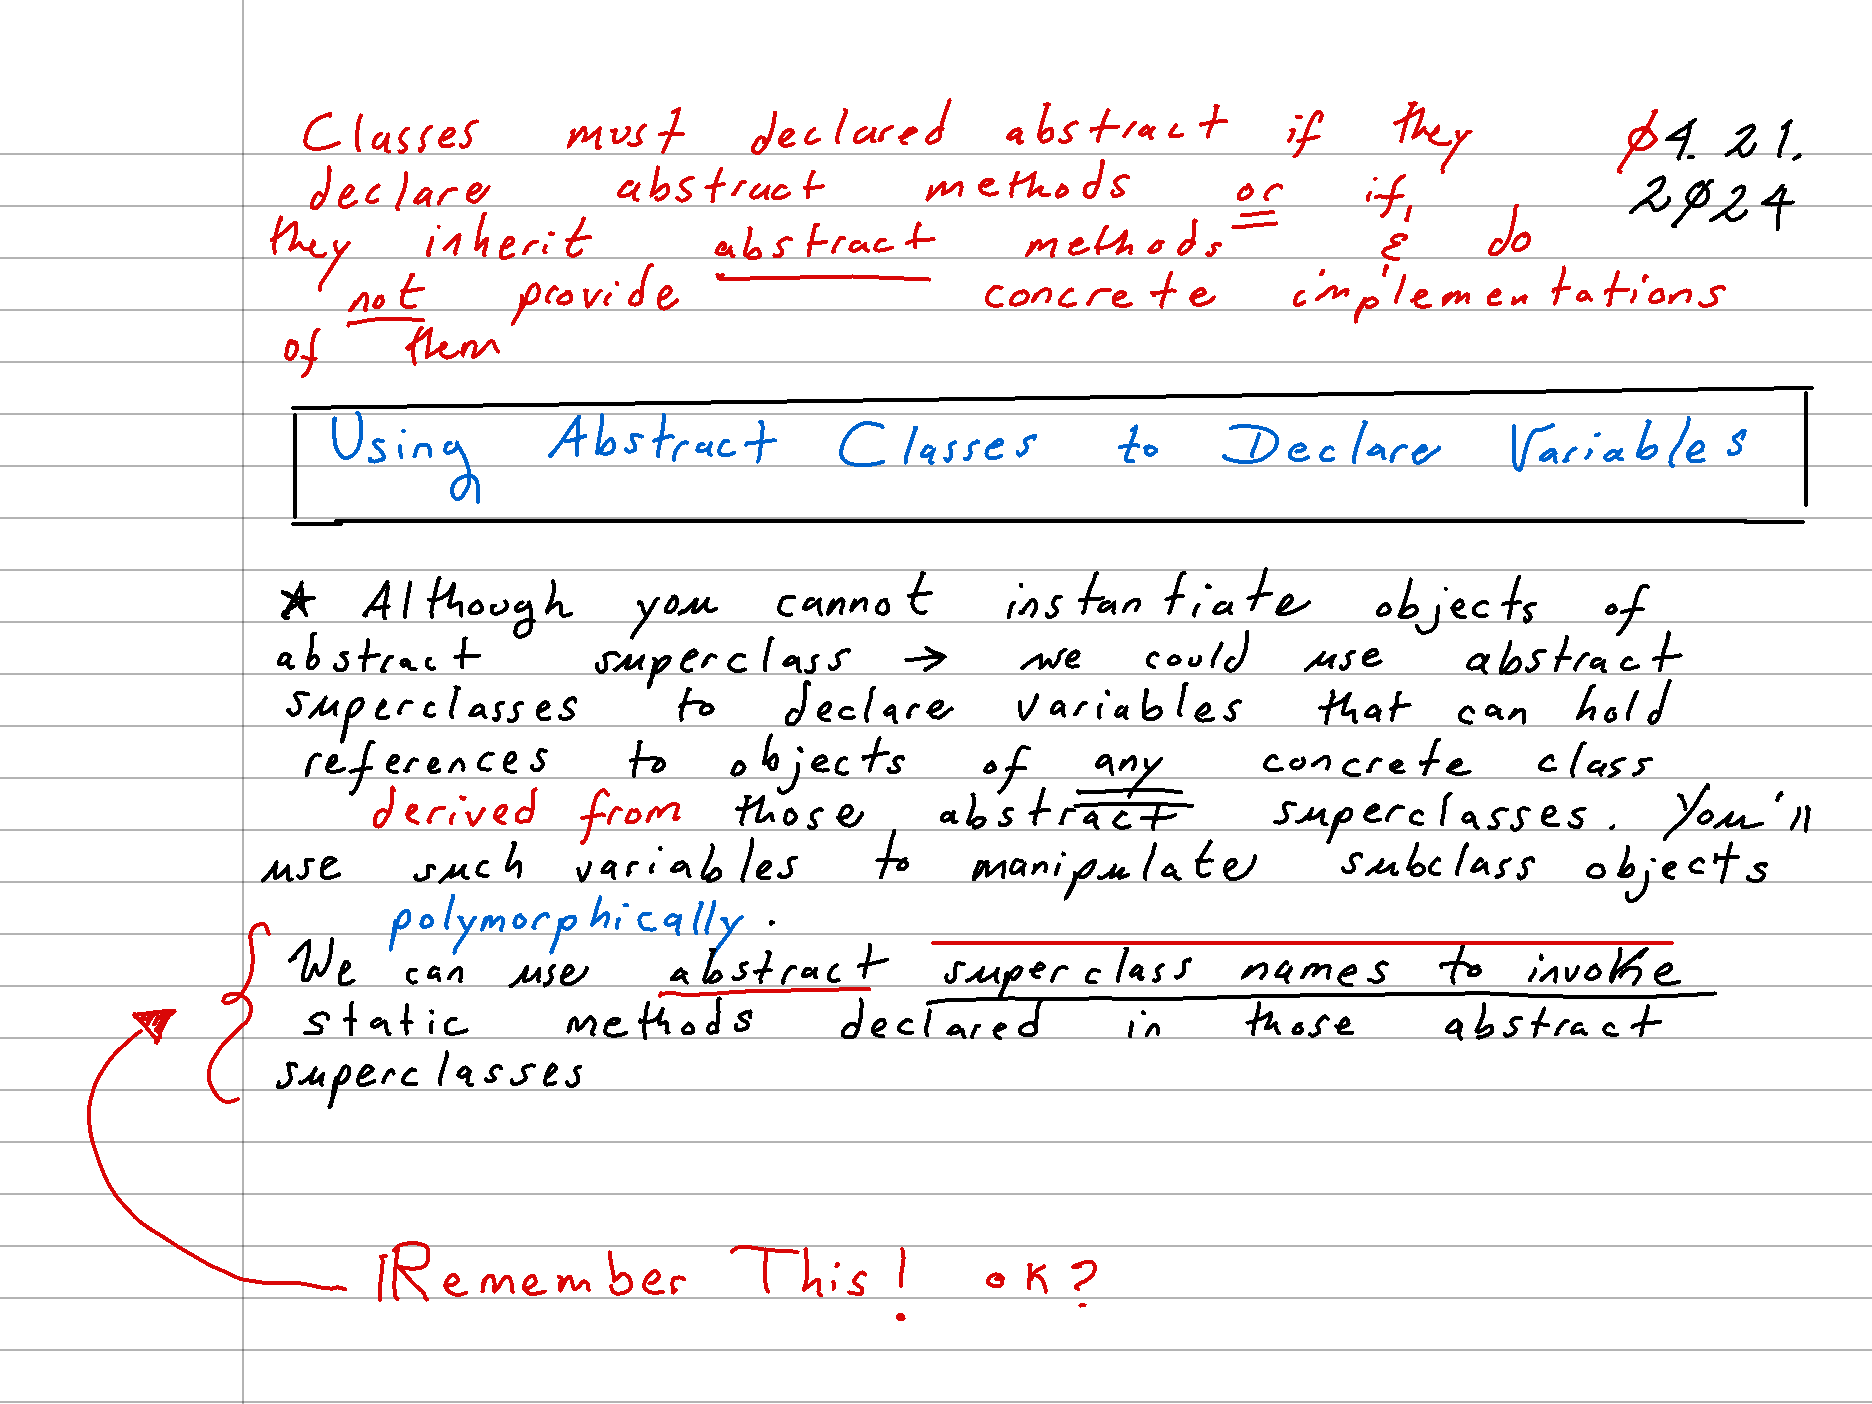 Classes must declared abstract if they
Ø4. 21.
declare abstract methods or if,
2Ø24
they inherit abstract methods & do
not provide concrete implementations
of them
Using Abstract Classes to Declare Variables
★ Although you cannot instantiate objects of
abstract superclass → we could use abstract
superclasses to declare variables that can hold
references to objects of any concrete class
derived from those abstract superclasses. You'll
use such variables to manipulate subclass objects
polymorphically.
We can use abstract superclass names to invoke
static methods declared in those abstract
superclasses
Remember This! OK?